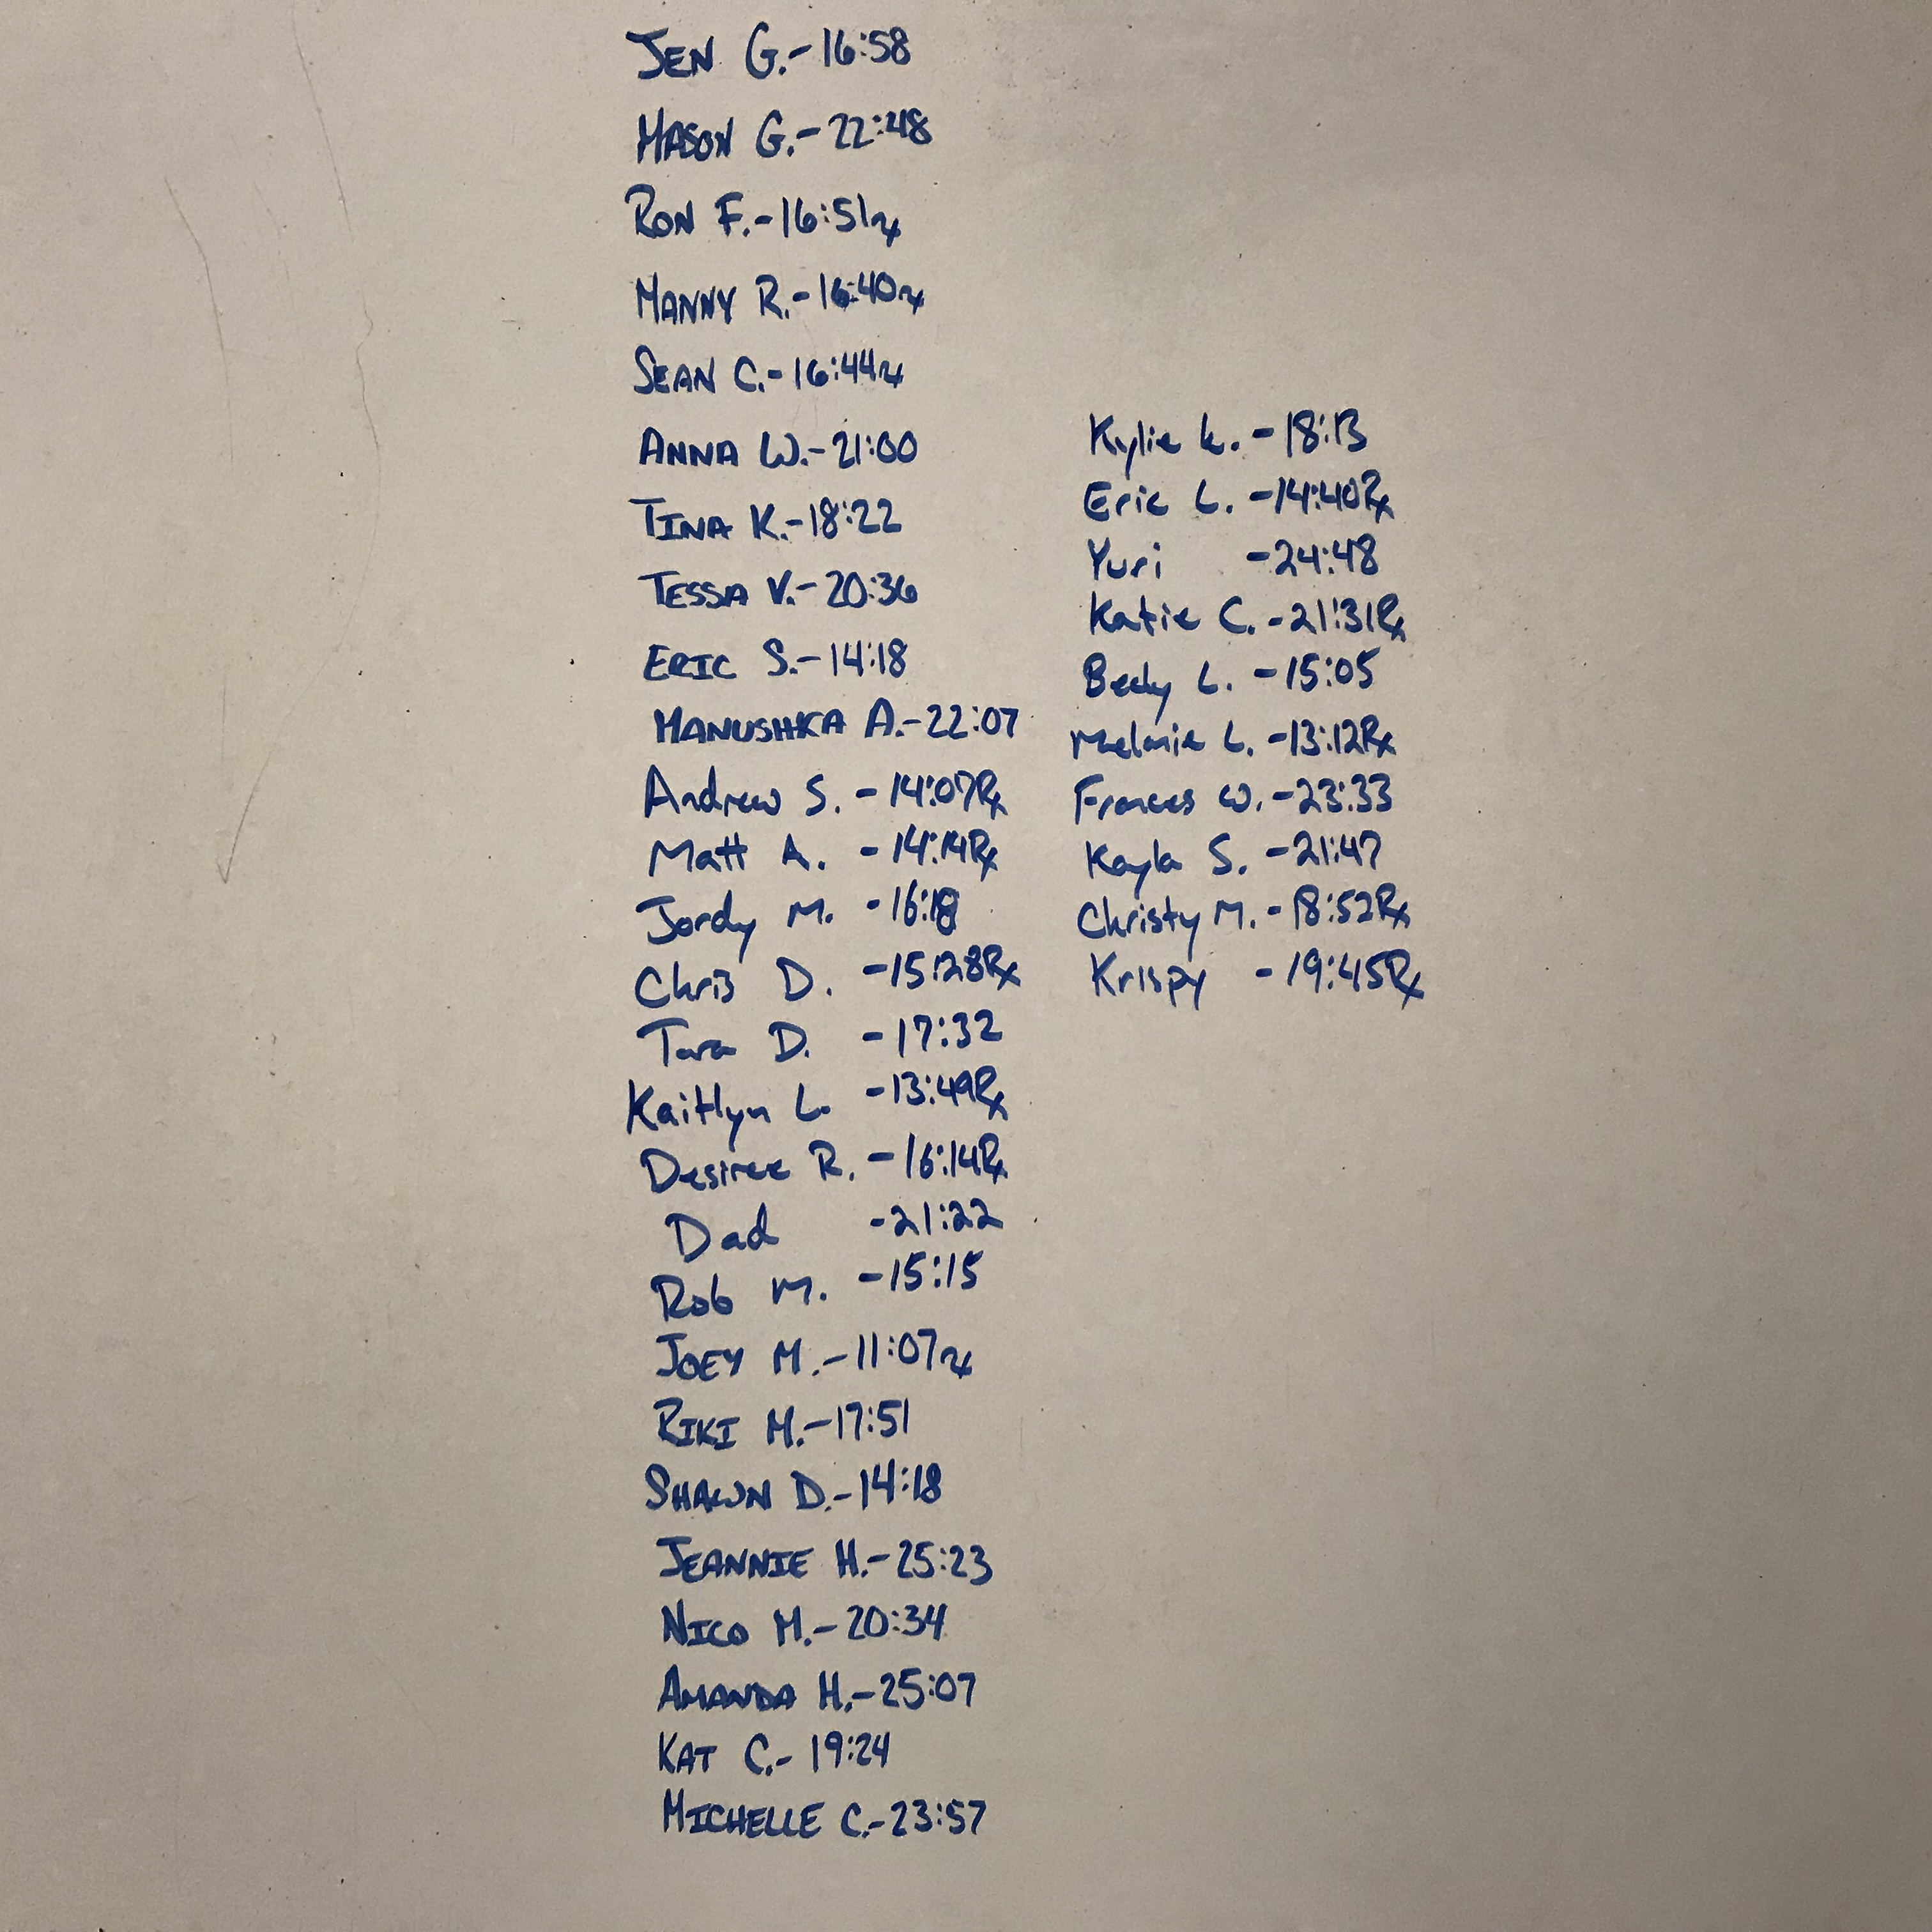 JEN G.-16:58
MASON G.-22:48
RON F.-16:51rx
MANNY R.-16:40rx
SEAN C.-16:44rx
ANNA W.-21:00
TINA K.-18:22
TESSA V.-20:36
ERIC S.-14:18
MANUSHKA A.-22:07
Andrew S. -14:07Rx
Matt A. -14:14Rx
Jordy M. -16:18
Chris D. -15:28Rx
Tara D. -17:32
Kaitlyn L. -13:49Rx
Desiree R. -16:14Rx
Dad -21:22
Rob M. -15:15
JOEY M.-11:07rx
RIKI M.-17:51
SHAWN D.-14:18
JEANNIE H.-25:23
NICO M.-20:34
AMANDA H.-25:07
KAT C.- 19:24
MICHELLE C.-23:57
Kylie K. -18:13
Eric L. -14:40Rx
Yuri -24:48
Katie C. -21:31Rx
Becky L. -15:05
Melanie L. -13:12Rx
Frances W. -23:33
Kayla S. -21:47
Christy M. -18:52Rx
Krispy -19:45Rx